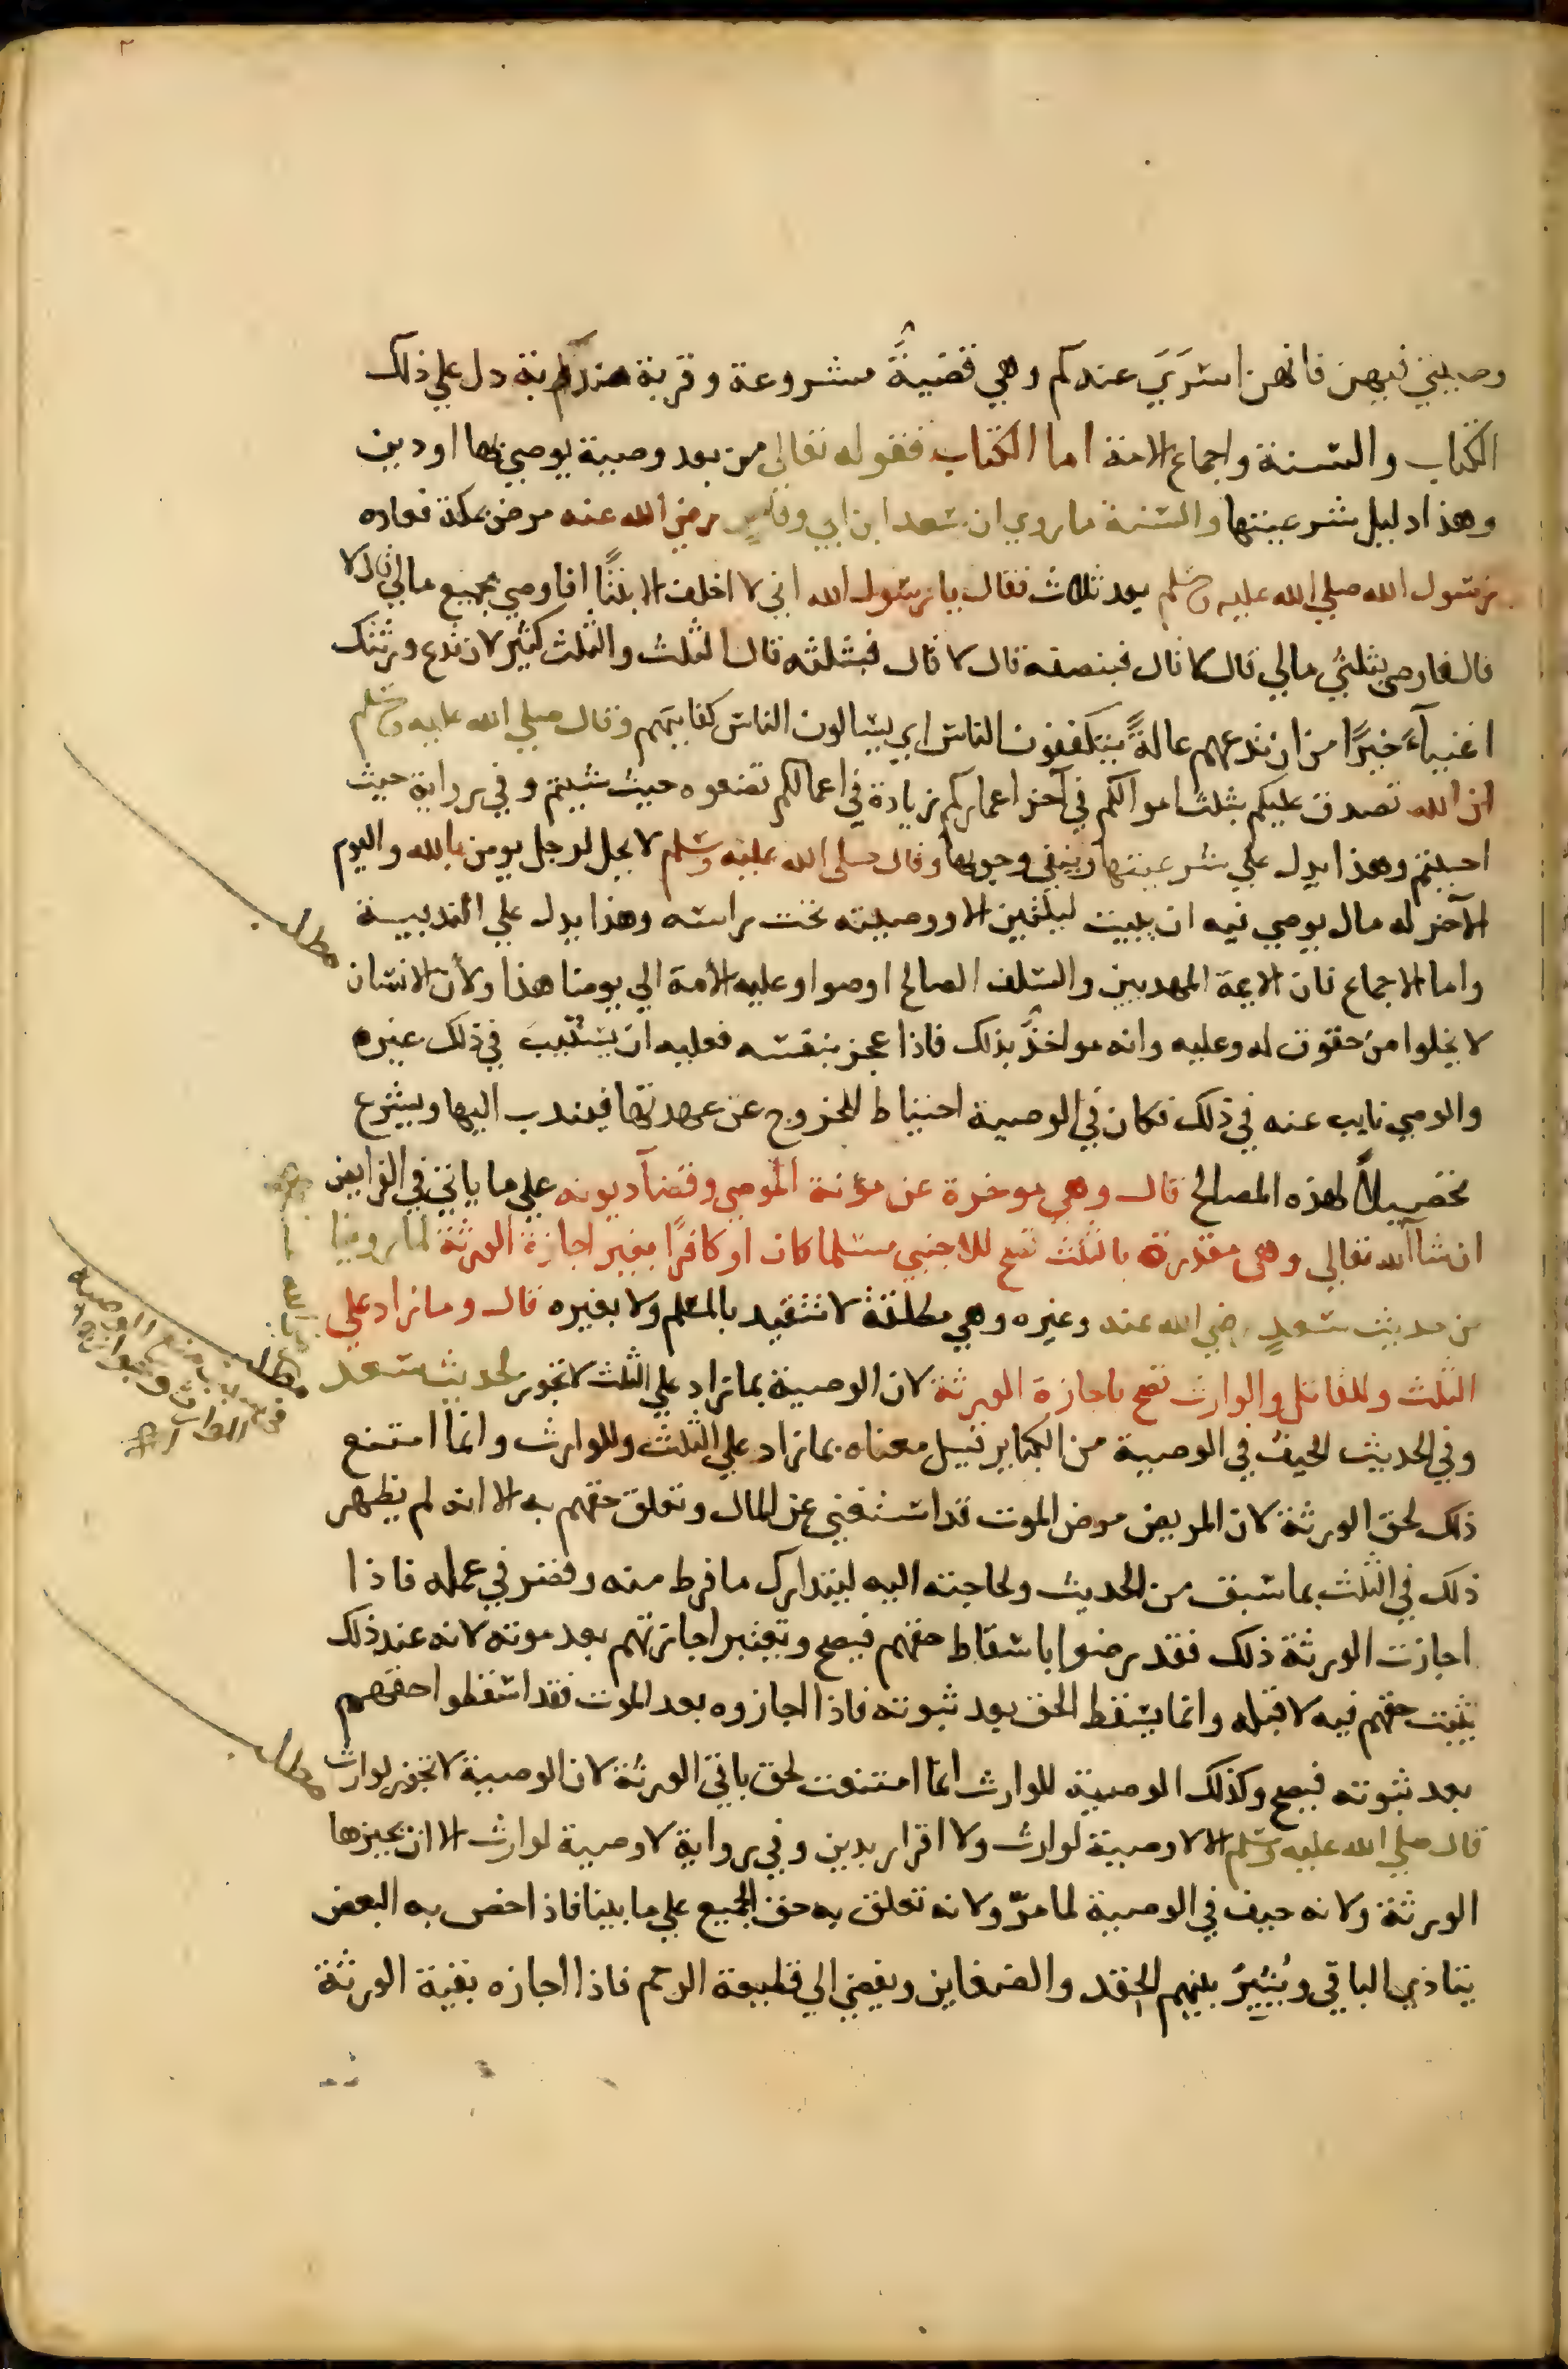 ٢
وصيتي فيهن فانهن اسرَيَ عندكم وهي قضيةٌ مشروعة وقربة مندوبة دل علي ذلك
الكتاب والسنة واجماع الامة اما الكتاب فقوله تعالي من بعد وصية يوصي بها او دين
وهذا دليل شرعيتها والسنة ما روي ان سعد ابن ابي وقاصٍ رضي الله عنه مرض بمكة فعاده
رسول الله صلي الله عليه وسلم بعد ثلاث فقال يا رسول الله اني لا اخلف الا بنتًا افاوصي بجميع مالي قال لا
قال فاوصي بثلثي مالي قال لا قال فبنصفه قال لا قال فبثلثه قال الثلث والثلث كثير لان تدع ورثتك
اغنياءً خيرًا من ان تدعهم عالةً يتكففون الناس اي يسالون الناس كفايتهم وقال صلي الله عليه وسلم
ان الله تصدق عليكم بثلث اموالكم في آخر اعماركم زيادة في اعمالكم تضعوه حيث شيتم وفي رواية حيث
احببتم وهذا يدل علي شرعيتها وينفي وجوبها وقال صلي الله عليه وسلم لا يحل لرجل يومن بالله واليوم
الآخر له مال يوصي فيه ان يبيت ليلتين الا ووصيته تحت راسه وهذا يدل علي الندبية
مطلب
واما الاجماع فان الايمة المهديين والسلف الصالح اوصوا وعليه الأمة الي يومنا هذا ولأن الانسان
لا يخلوا من حقوق له وعليه وانه مواخذٌ بذلك فاذا عجز بنفسه فعليه ان يستنيبَ في ذلك غيره
والوصي نايب عنه في ذلك فكان في الوصية احتياط للخروج عن عهدتها فيندب اليها ويشرع
تحصيلًا لهذه المصالح قال وهي موخرة عن مؤنة الموصي وقضآ ديونه علي ما ياتي في الفرايض
ان شآ الله تعالي وهي مقدرة بالثلث تصح للاجنبي مسلما كان او كافرًا بغير اجازة الورثة لما روينا
من حديث سعدٍ رضي الله عنه وغيره وهي مطلقة لا تتقيد بالمسلم ولا بغيره قال وما زاد علي
مطلب
الثلث وللقاتل والوارث تصح باجازة الورثة لان الوصية بما زاد علي الثلث لا تجوز لحديث سعد
وفي الحديث الحيف في الوصية من الكباير قيل معناه بما زاد علي الثلث وللوارث وانما امتنع
ذلك لحق الورثة لان المريض مرض الموت قد استغني عن المال وتعلق حقهم به الا انه لم يظهر
ذلك في الثلث بما سبق من الحديث ولحاجته اليه ليتدارك ما فرط منه وقصر في عمله فاذا
اجازت الورثة ذلك فقد رضوا باسقاط حقهم فيصح وتعتبر اجازتهم بعد موته لانه عند ذلك
يثبت حقهم فيه لا قبله وانما يسقط الحق بعد ثبوته فاذا اجازوه بعد الموت فقد اسقطوا حقهم
مطلب
بعد ثبوته فيصح وكذلك الوصية للوارث انما امتنعت لحق باقي الورثة لان الوصية لا تجوز لوارث
قال صلي الله عليه وسلم الا لا وصية لوارث ولا اقرار بدين وفي رواية لا وصية لوارث الا ان يجيزها
الورثة ولانه حيف في الوصية لما مرّ ولانه تعلق به حق الجميع علي ما بينا فاذا خص به البعض
يتاذي الباقي ويُثيرُ بينهم الحقد والضغاين ويفضي الي قطيعة الرحم فاذا اجازه بقية الورثة